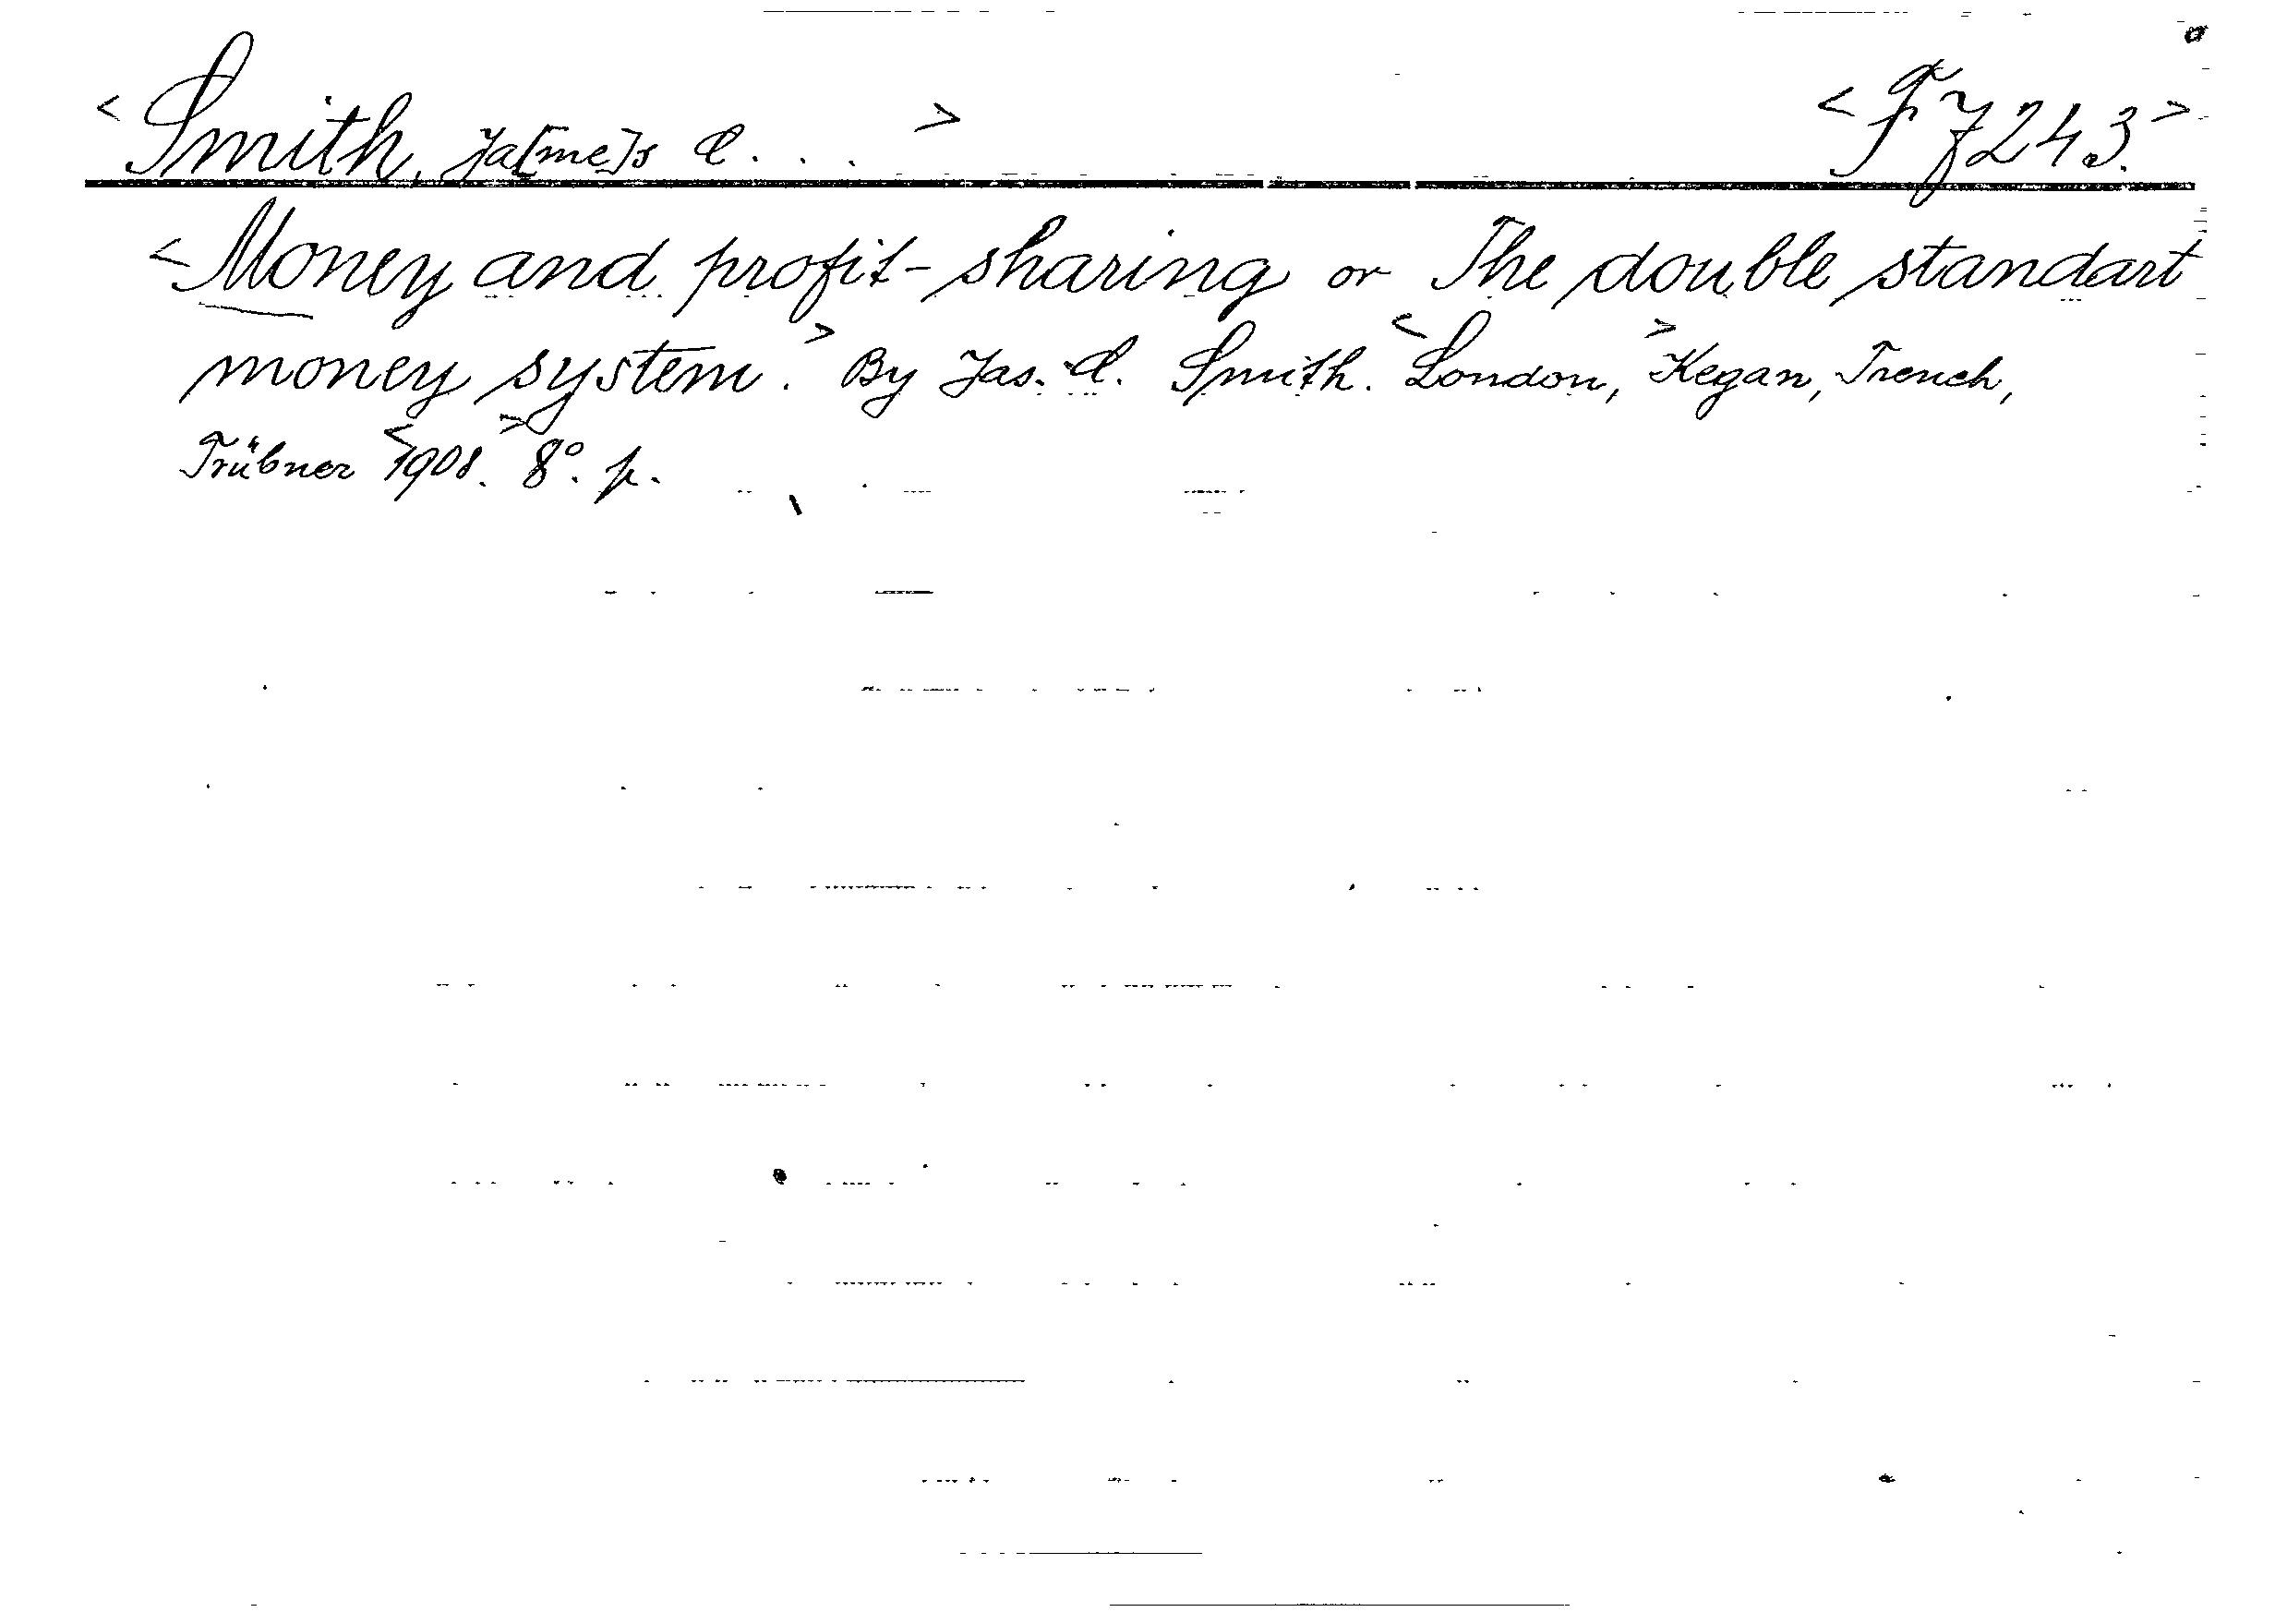 <Smith, Ja[me]s C. . .> <F 7243.>
<Money and profit-sharing or The double standart
money system.> By Jas. C. Smith. <London,> Kegan, Trench,
Trübner <1908.> 8°. p.